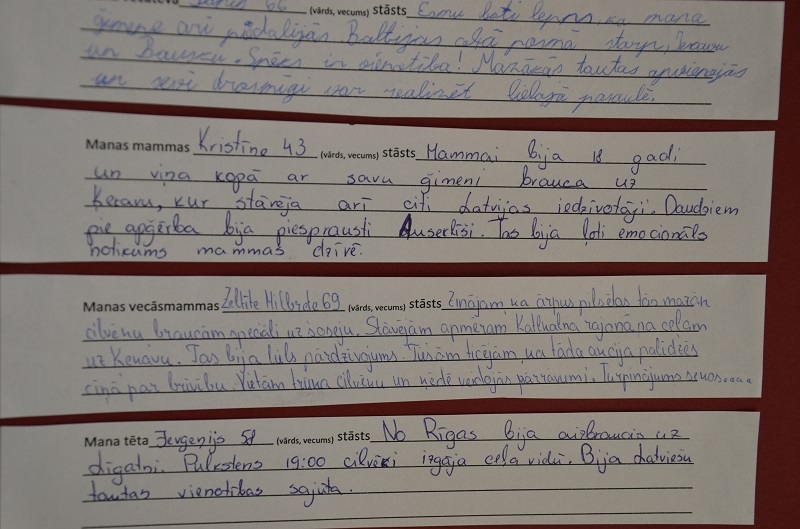 66 (vārds, vecums) stāsts Esmu ļoti lepns, ka mana
ģimene arī piedalījās Baltijas ceļā posmā starp Iecavu
un Bausku. Spēks ir vienotība! Mazākās tautas apvienojās
un sevi drosmīgi var realizēt lielajā pasaulē.
Manas mammas Kristīne 43 (vārds, vecums) stāsts Mammai bija 18 gadi
un viņa kopā ar savu ģimeni brauca uz
Ķekavu, kur stāvēja arī citi Latvijas iedzīvotāji. Daudziem
pie apģērba bija piesprausti Auseklīši. Tas bija ļoti emocionāls
notikums mammas dzīvē.
Manas vecāsmammas Zeltīte 69 (vārds, vecums) stāsts Zinājām, ka ārpus pilsētas tās mazāk
cilvēku braucām speciāli uz šoseju. Stāvējām apmēram Katlkalna rajonā pa ceļam
uz Ķekavu. Tas bija liels pārdzīvojums. Tiešām ticējām, ka tāda akcija palīdzēs
cīņā par brīvību. Vietām trūka cilvēku un ķēdē veidojās pārrāvumi. Turpinājums sekos......
Mana tēta Jevgeņijs 51 (vārds, vecums) stāsts No Rīgas bija aizbraucis uz
Līgatni. Pulkstens 19:00 cilvēki izgāja ceļa vidū. Bija Latviešu
tautas vienotības sajūta.